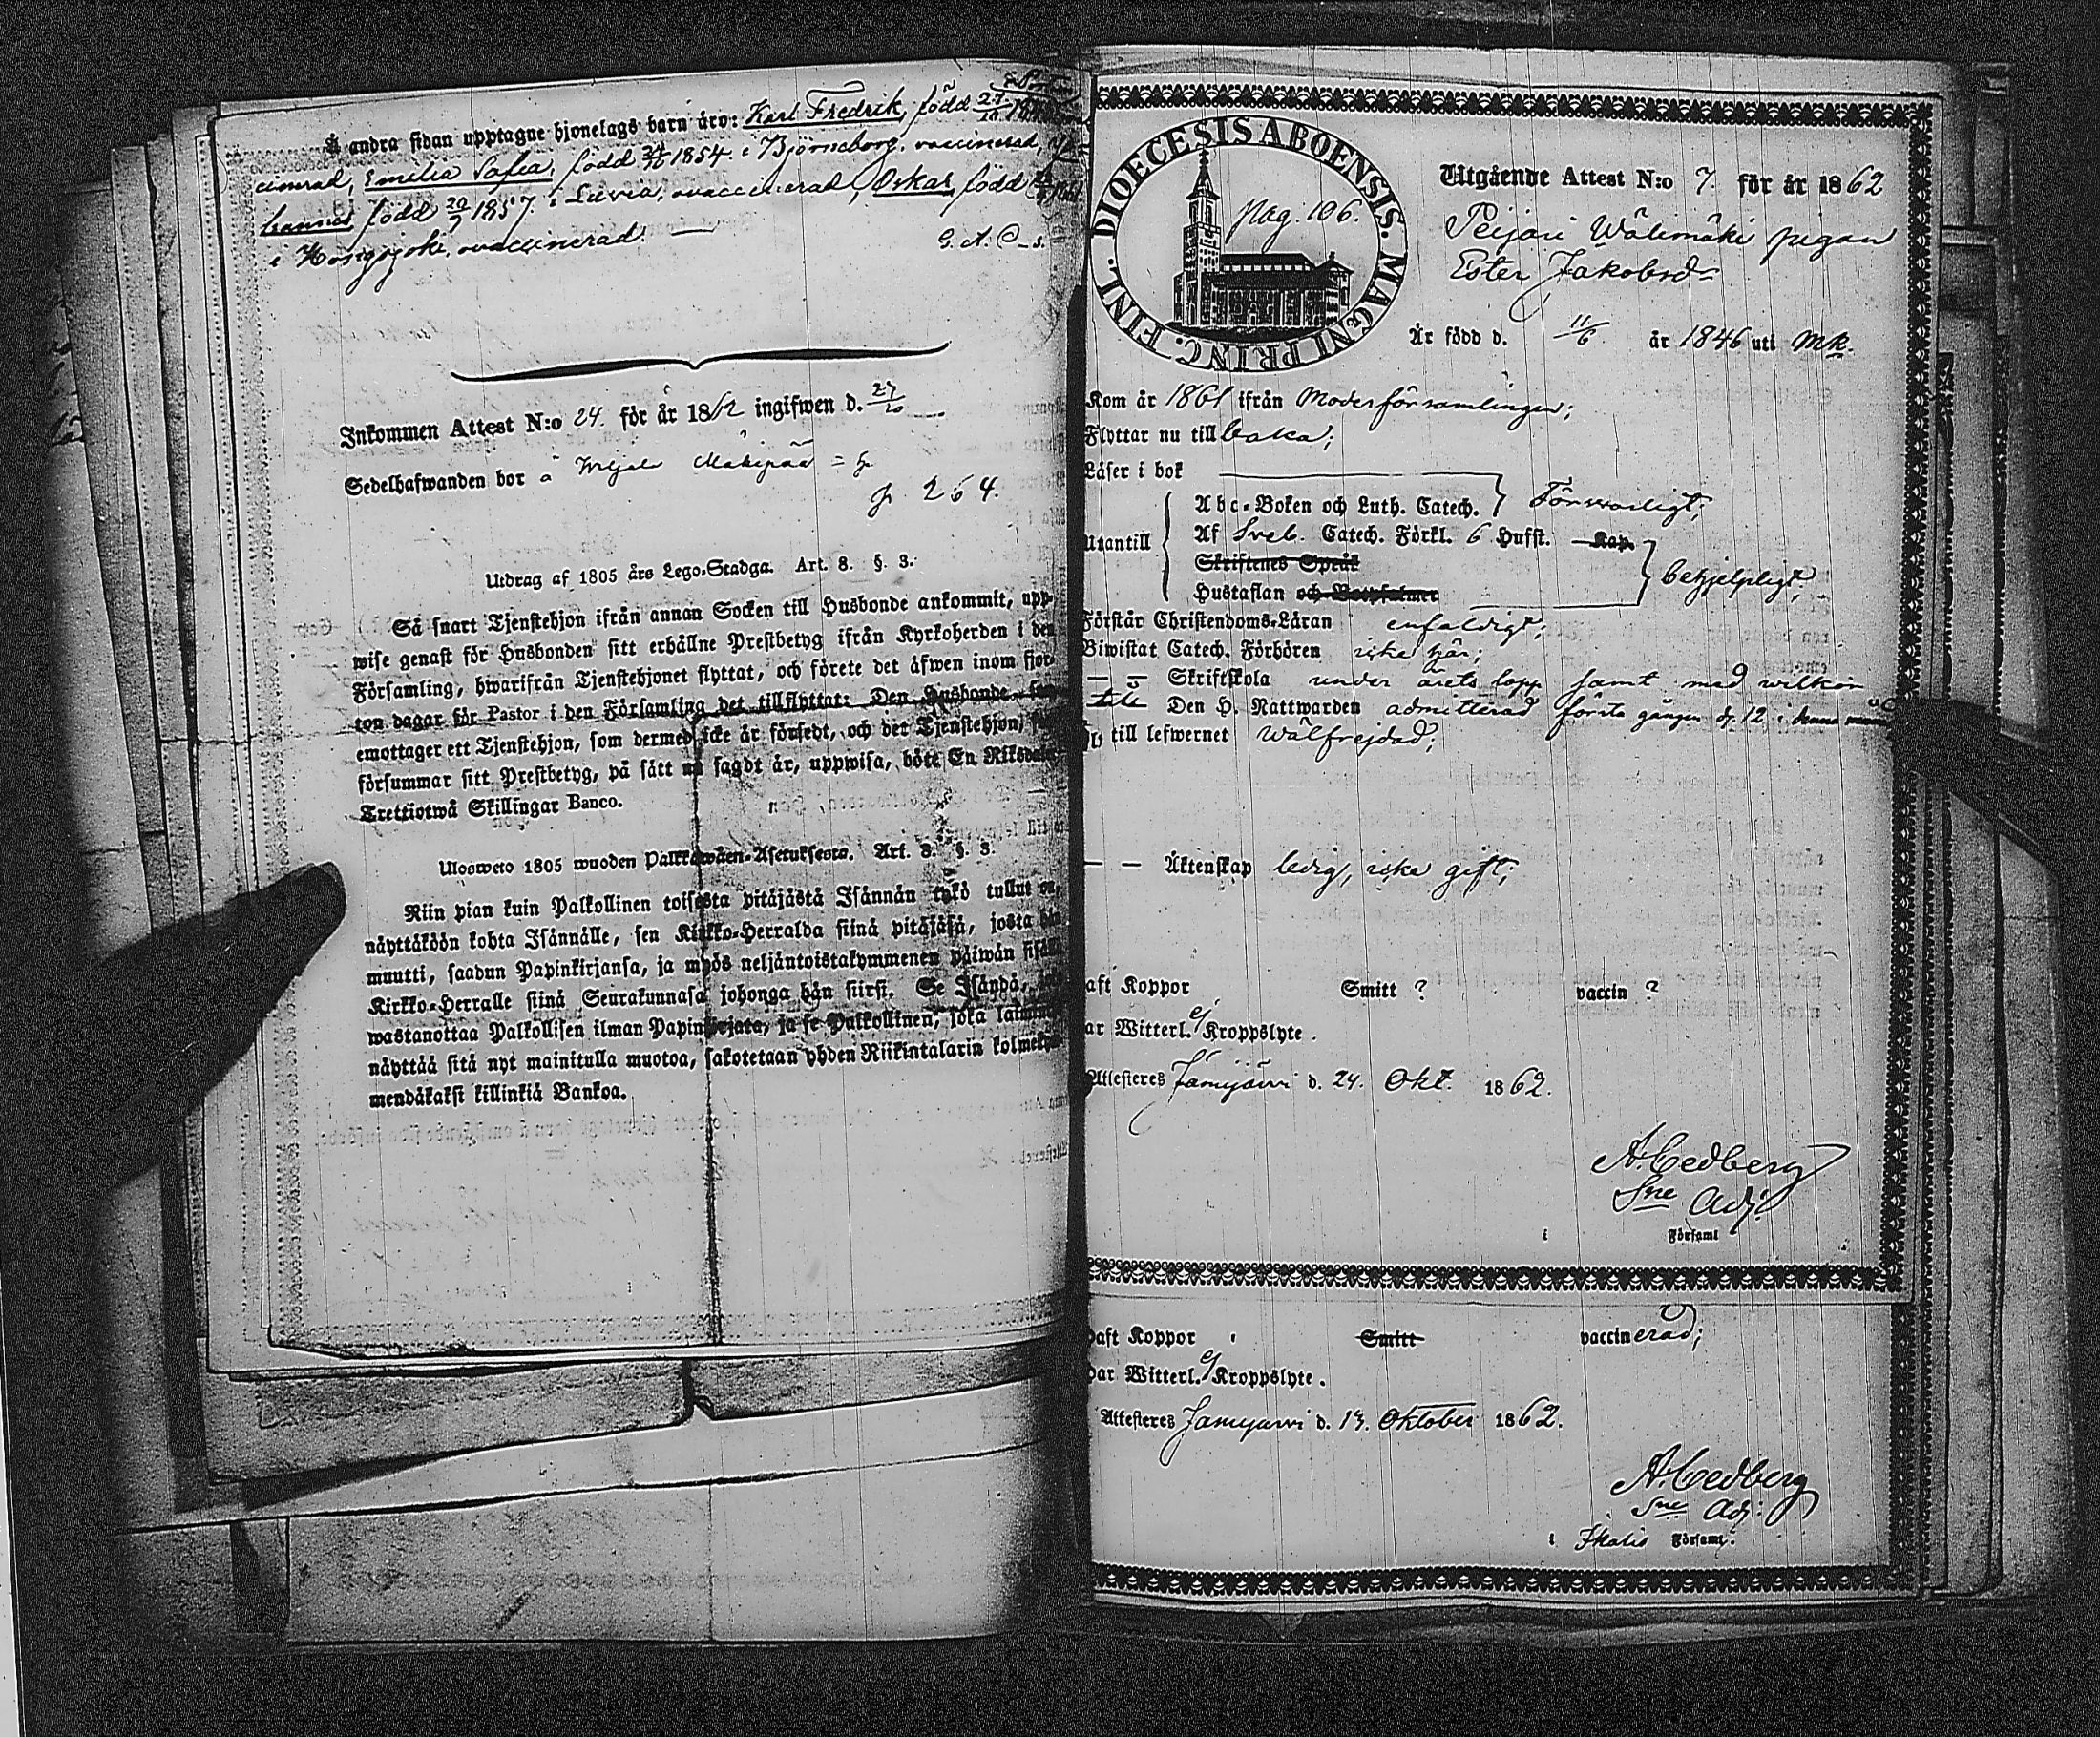 Å andra sidan upptagne hjonelags barn äro: Karl Fredrik, född
cinerad, Emilia Sofia, född 1854 i Björneborg, vaccinerad,
hannes född 20/7 1857 i Luvia, ovaccinerad, Oskar, född
i Hongojoki, ovaccinerad. —
Inkommen Attest N:o 24. för år 1862 ingifwen d. 27/10
Sedelhafwanden bor å Mäkipää
p 264.
Utdrag af 1805 års Lego-Stadga. Art. 8. §. 3.
Så snart Tjenstehjon ifrån annan Socken till Husbonde ankommit, upp-
wise genast för Husbonden sitt erhållne Prestbetyg ifrån Kyrkoherden i den
Församling, hwarifrån Tjenstehjonet flyttat, och förete det äfwen inom fjor-
ton dagar för Pastor i den Församling det tillflyttat: Den Husbonde
emottager ett Tjenstehjon, som dermed icke är försedt, och det Tjenstehjon,
försummar sitt Prestbetyg, på sätt nu sagdt är, uppwisa, böte En Riksdaler
Trettiotwå Skillingar Banco.
Ulosweto 1805 wuoden Palkkawäen-Asetuksesta. Art. 8. §. 3.
Niin pian kuin Palkollinen toisesta pitäjästä Isännän tykö tullut on,
näyttäköön kohta Isännälle, sen Kirkko-Herralda siinä pitäjäsä, josta hän
muutti, saadun Papinkirjansa, ja myös neljäntoistakymmenen päiwän sisäll
Kirkko-Herralle siinä Seurakunnasa johonga hän siirsi. Se Isändä,
wastanottaa Palkollisen ilman Papinkirjata, ja se Palkollinen, joka laimin
näyttää sitä nyt mainitulla muotoa, sakotetaan yhden Riikintalarin kolmekym
mendäkaksi killinkiä Bankoa.
DIOECESIS ABOENSIS. MAGNI PRINC. FINL.
Pag. 106.
Utgående Attest N:o 7. för år 1862
Peijari Wälimäki pigan
Ester Jakobsdr
Är född d. 11/6 år 1846 uti Mk.
Kom år 1861 ifrån Moderförsamlingen;
Flyttar nu till baka;
Läser i bok
Abc-Boken och Luth. Catech. Försvarligt;
Utantill Af Sveb. Catech. Förkl. 6 Hufst. Kap.
Skriftenes Språk
Hustaflan och Botpsalmer behjelpligt;
Förstår Christendoms-Läran enfaldigt;
Biwistat Catech. Förhören icke här;
— — Skriftskola under årets lopp samt med wilkor
Den H. Nattwarden admitterad första gången d. 12 i denna
till lefwernet wälfrejdad;
— — Äktenskap ledig, icke gift;
aft Koppor Smitt ? vaccin ?
ar Witterl. ej Kroppslyte.
Attesteres Jämijärvi d. 24. Okt. 1862.
A. Cedberg
Sne Adj:
i Församl
aft Koppor Smitt vaccinerad;
ar Witterl. ej Kroppslyte.
Attesteres Jämijärvi d. 13. Oktober 1862.
A. Cedberg
Sne Adj:
i Ikalis Församl.